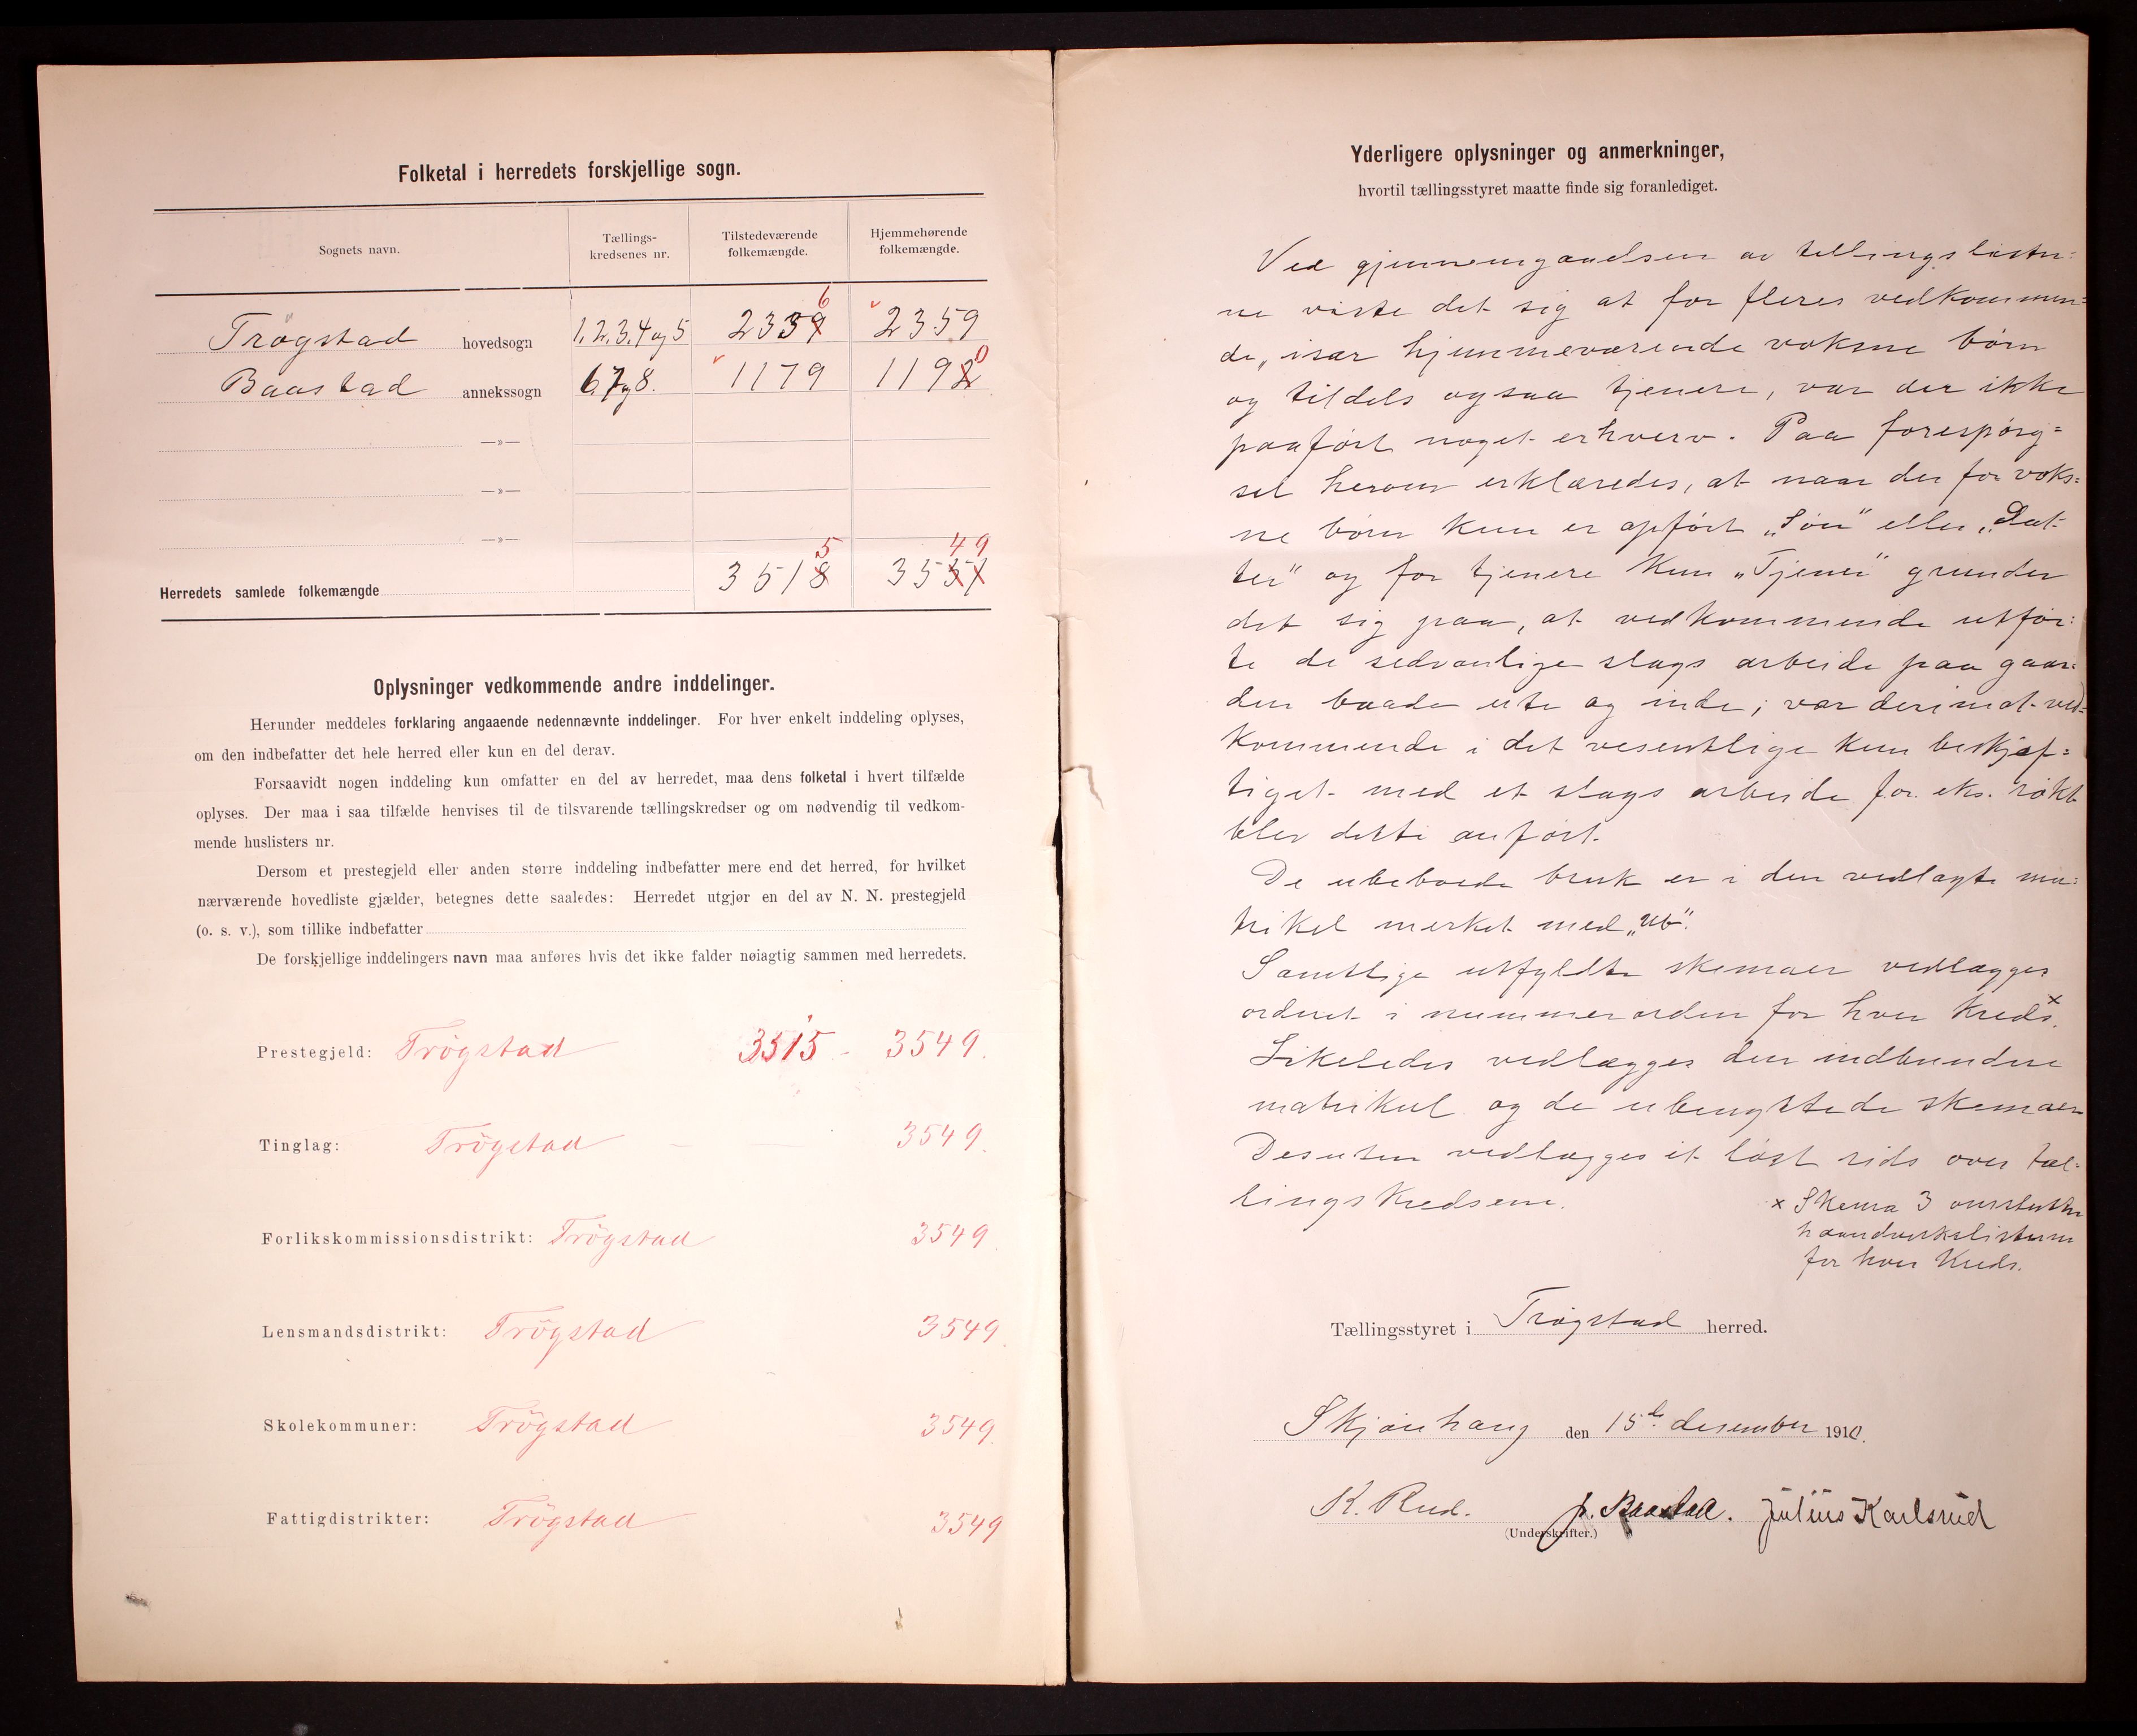 Folketal i herredets forskjellige sogn.
Sognets navn. Tællings-kredsenes nr. Tilstedeværende folkemængde. Hjemmehørende folkemængde.
6
Trögstad hovedsogn 1, 2, 3, 4 og 5 2339 2359
0
Baastad annekssogn 6, 7 og 8. 1179 1192
—»—
—»—
—»—
5 49
Herredets samlede folkemængde 3518 3551
Oplysninger vedkommende andre inddelinger.
Herunder meddeles forklaring angaaende nedennævnte inddelinger. For hver enkelt inddeling oplyses,
om den indbefatter det hele herred eller kun en del derav.
Forsaavidt nogen inddeling kun omfatter en del av herredet, maa dens folketal i hvert tilfælde
oplyses. Der maa i saa tilfælde henvises til de tilsvarende tællingskredser og om nødvendig til vedkom-
mende huslisters nr.
Dersom et prestegjeld eller anden større inddeling indbefatter mere end det herred, for hvilket
nærværende hovedliste gjælder, betegnes dette saaledes: Herredet utgjør en del av N. N. prestegjeld
(o. s. v.), som tillike indbefatter
De forskjellige inddelingers navn maa anføres hvis det ikke falder nøiagtig sammen med herredets.
Prestegjeld: Trögstad 3515 - 3549.
Tinglag: Trögstad — 3549.
Forlikskommissionsdistrikt: Trögstad 3549.
Lensmandsdistrikt: Trögstad 3549.
Skolekommuner: Trögstad 3549.
Fattigdistrikter: Trögstad 3549
Yderligere oplysninger og anmerkninger,
hvortil tællingsstyret maatte finde sig foranlediget.
Ved gjennemgaaelsen av tellingslister=
ne viste det sig at for fleres vedkommen=
de, især hjemmeværende voksne børn
og tildels ogsaa tjenere, var der ikke
paaført noget erhverv. Paa forespørg=
sel herom erklæredes, at naar der for voks=
ne børn kun er opført „Søn" eller „Dat-
ter" og for tjenere kun „Tjener" grunder
det sig paa, at vedkommende utfør=
te de sedvanlige slags arbeide paa gaar=
den baade ute og inde; var derimot ved=
kommende i det vesentlige kun beskjæf=
tiget med et slags arbeide for eks. røkt
blev dette anført.
De ubeboede bruk er i den vedlagte ma=
trikel merket med „Ub".
Samtlige utfyldte skemaer vedlægges
ordnet i nummerorden for hver kreds. x
Likeledes vedlægges den indbundne
matrikul og de ubenyttede skemaer
Desuten vedlægges et løst rids over tæl-
lingskredsene.
x Skema 3 omslutter
haandverkslisterne
for hver Kreds.
Tællingsstyret i Trøgstad herred.
Skjønhaug den 15de desember 1910.
K. Rud. J. Baastad. Julius Karlsrud
(Underskrifter.)